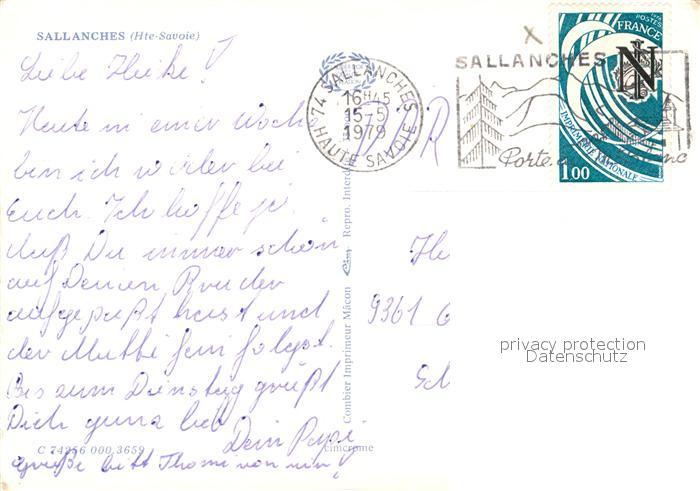 SALLANCHES (Hte-Savoie)
Liebe Heike!
Heute in einer Woche
bin ich wieder bei
Euch. Ich hoffe ja,
daß Du immer schön
auf Deinen Bruder
aufgepaßt hast und
der Mutti fein folgst.
Bis zum Dienstag grüßt
Dich ganz lieb
Dein Papi
grüße bitt Thomi von mir!
C 74256 000 3659
cimcrome
Combier Imprimeur Mâcon
Repro. Interd
74 SALLANCHES
16H45
15-5
1979
HAUTE SAVOIE
DDR
X
SALLANCHES
Porte
1978
POSTES
FRANCE
IN
IMPRIMERIE NATIONALE
1.00
He
9361 G
Sch
privacy protection
Datenschutz